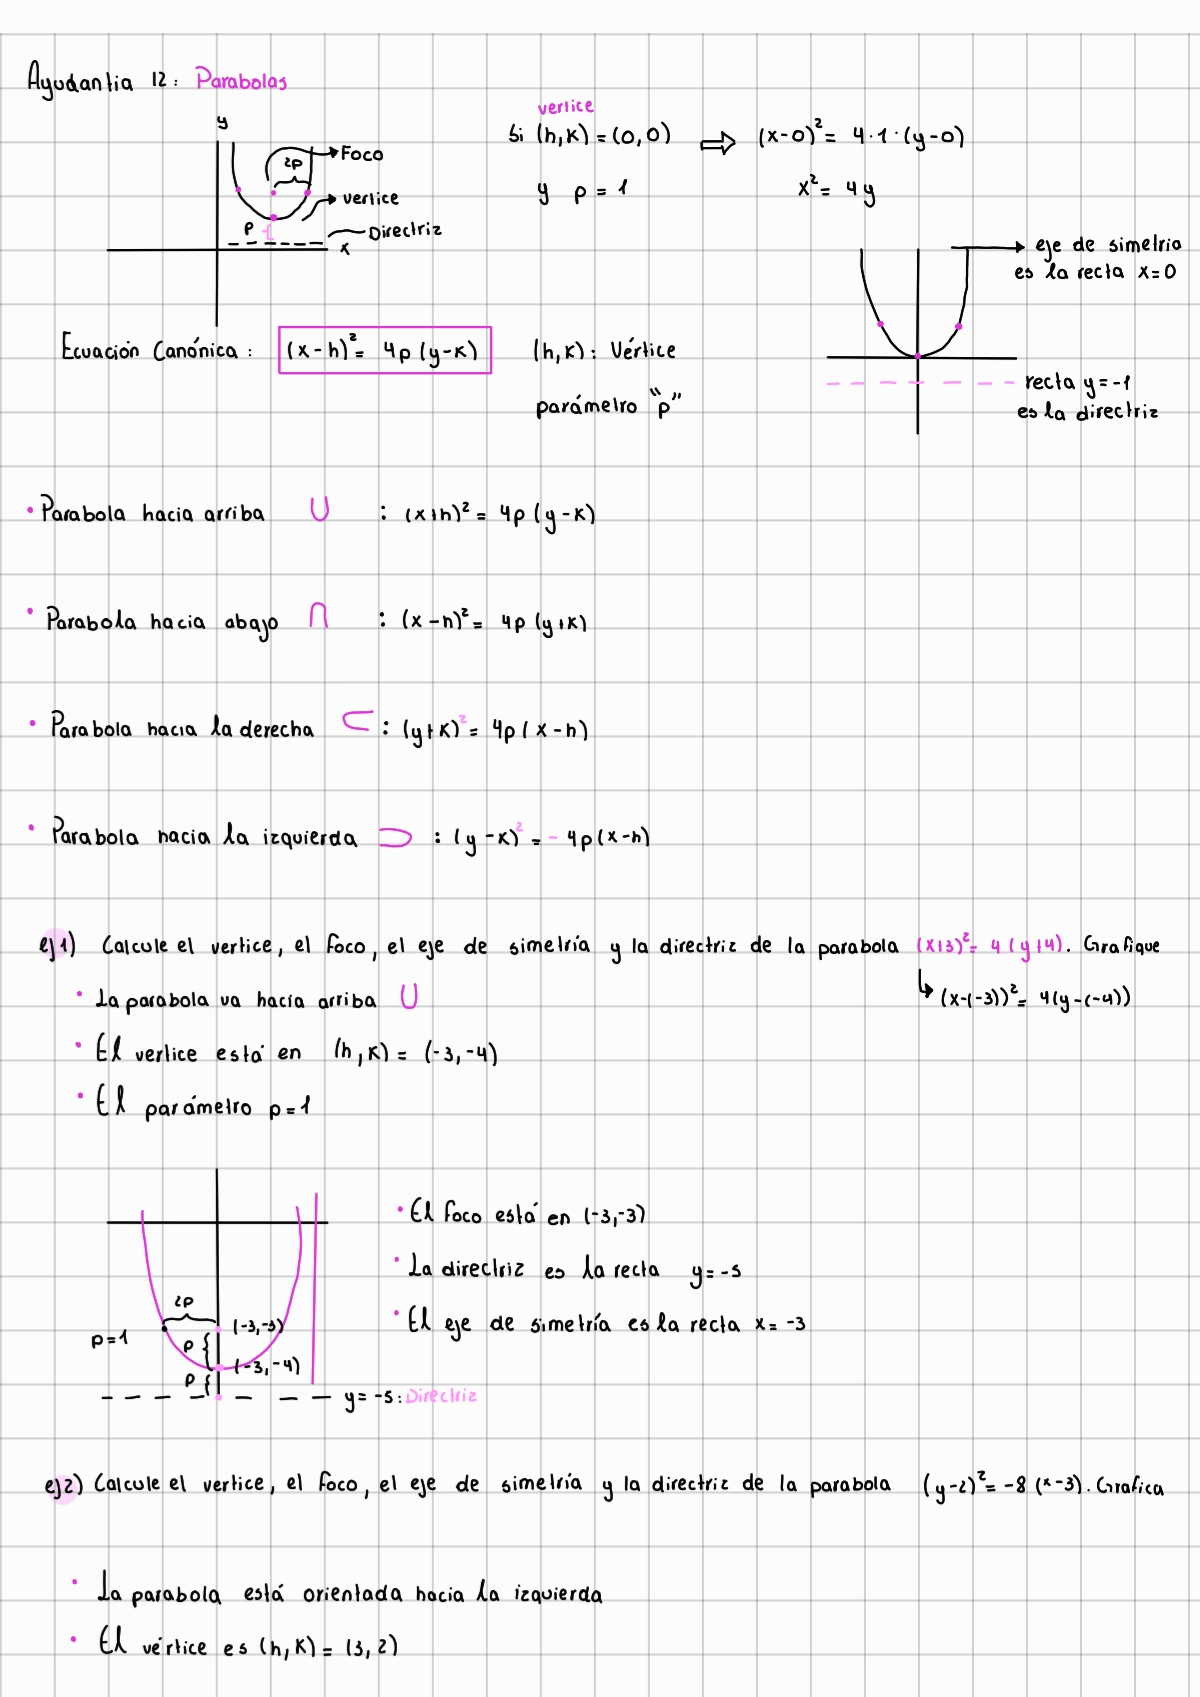 Ayudantia 12: Parabolas
y
2p
Foco
vertice
p
Directriz
x
vertice
Si (h,k) = (0,0) ⇒ (x-0)² = 4·1·(y-0)
y p = 1 x² = 4y
eje de simetria
es la recta x=0
recta y=-1
es la directriz
Ecuación Canónica: (x-h)² = 4p(y-k) (h,k): Vértice
parámetro "p"
• Parabola hacia arriba ∪ : (x+h)² = 4p(y-k)
• Parabola hacia abajo ∩ : (x-h)² = 4p(y+k)
• Parabola hacia la derecha ⊂ : (y+k)² = 4p(x-h)
• Parabola hacia la izquierda ⊃ : (y-k)² = -4p(x-h)
ej1) Calcule el vertice, el foco, el eje de simetría y la directriz de la parabola (x+3)² = 4(y+4). Grafique
↳ (x-(-3))² = 4(y-(-4))
• La parabola va hacia arriba ∪
• El vertice está en (h,k) = (-3,-4)
• El parámetro p=1
2p
p=1
(-3,-3)
p
(-3,-4)
p
y=-5: Directriz
• El foco está en (-3,-3)
• La directriz es la recta y=-5
• El eje de simetría es la recta x=-3
ej2) Calcule el vertice, el foco, el eje de simetría y la directriz de la parabola (y-2)² = -8(x-3). Grafica
• La parabola está orientada hacia la izquierda
• El vértice es (h,k) = (3,2)